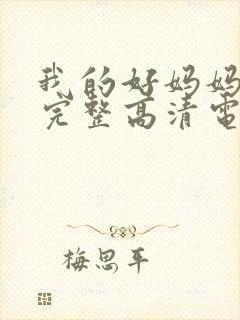 我的好妈妈
完整高清电
梅思平